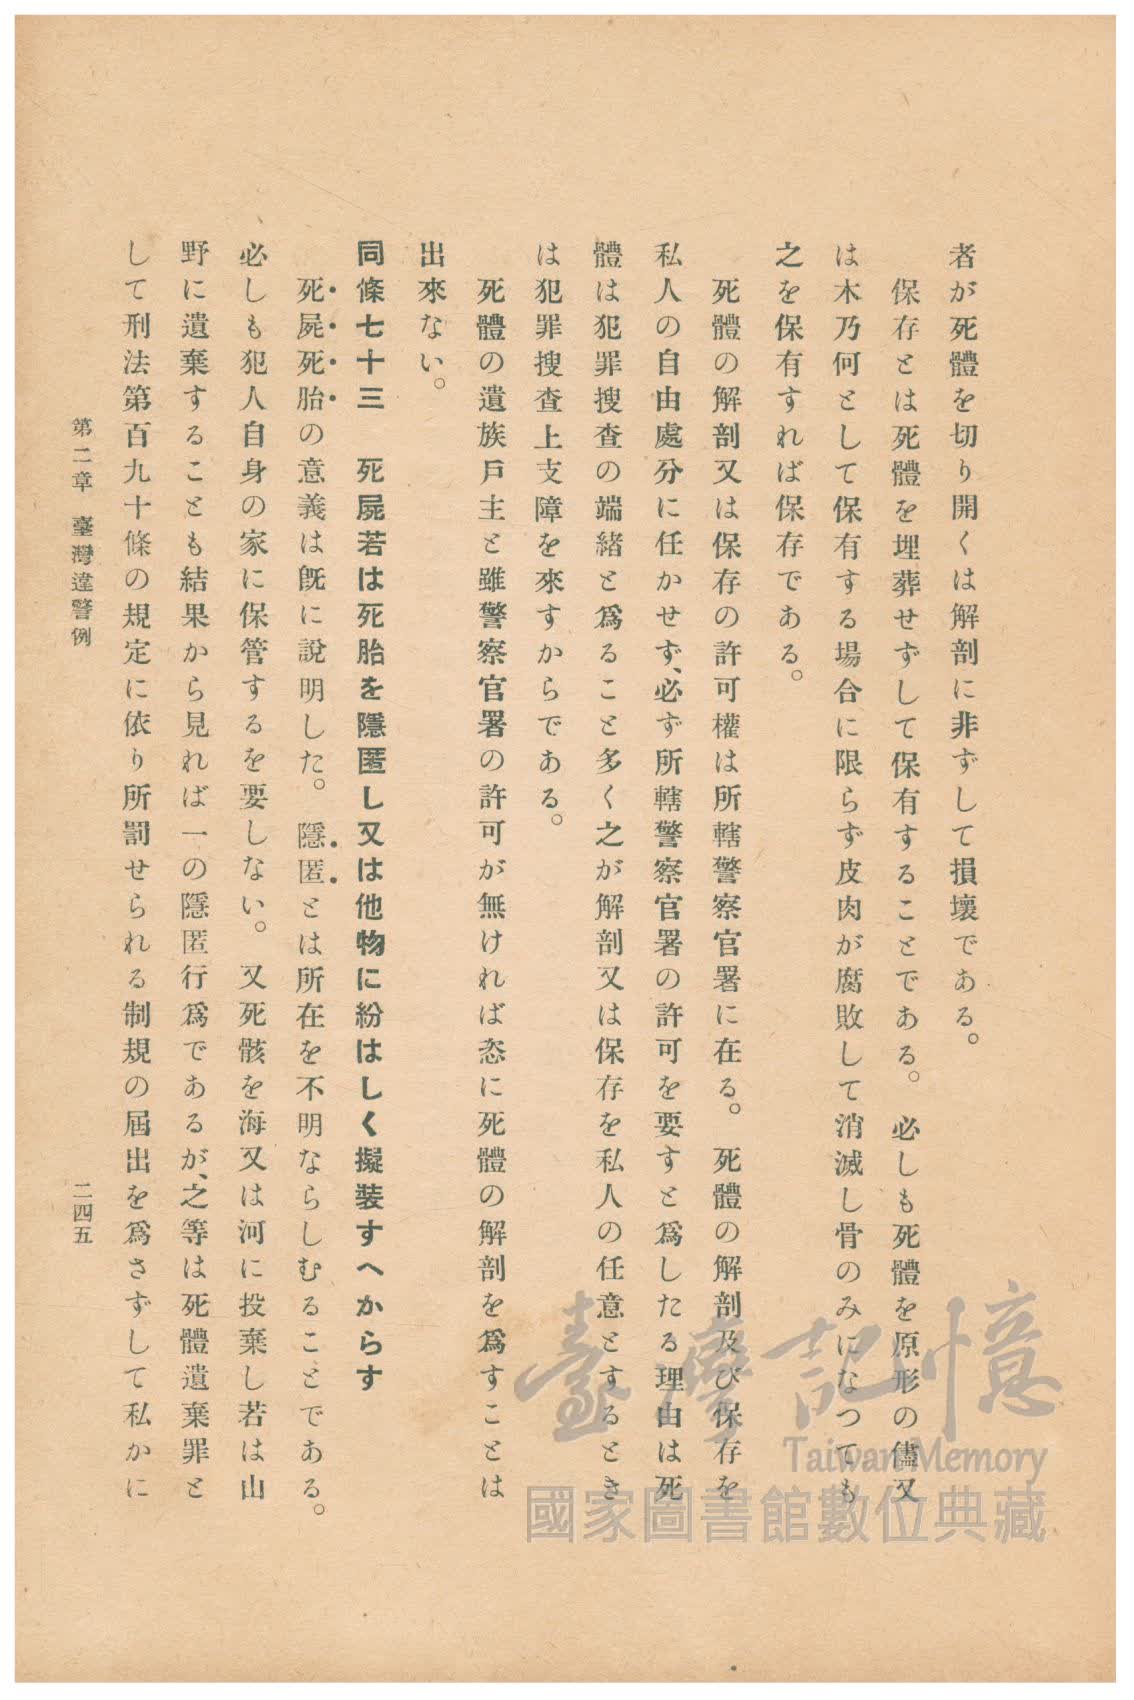 者が死體を切り開くは解剖に非ずして損壞である。
保存とは死體を埋葬せずして保有することである。必しも死體を原形の儘又
は木乃何として保有する場合に限らず皮肉が腐敗して消滅し骨のみになつても
之を保有すれば保存である。
死體の解剖又は保存の許可權は所轄警察官署に在る。死體の解剖及び保存を
私人の自由處分に任かせず、必ず所轄警察官署の許可を要すと爲したる理由は死
體は犯罪搜査の端緒と爲ること多く之が解剖又は保存を私人の任意とするとき
は犯罪搜査上支障を來すからである。
死體の遺族戶主と雖警察官署の許可が無ければ恣に死體の解剖を爲すことは
出來ない。
同條七十三 死屍若は死胎を隱匿し又は他物に紛はしく擬裝すへからす
死屍死胎の意義は旣に說明した。隱匿とは所在を不明ならしむることである。
必しも犯人自身の家に保管するを要しない。又死骸を海又は河に投棄し若は山
野に遺棄することも結果から見れば一の隱匿行爲であるが、之等は死體遺棄罪と
して刑法第百九十條の規定に依り所罰せられる制規の屆出を爲さずして私かに
第二章 臺灣違警例
二四五
臺灣記憶
Taiwan Memory
國家圖書館數位典藏